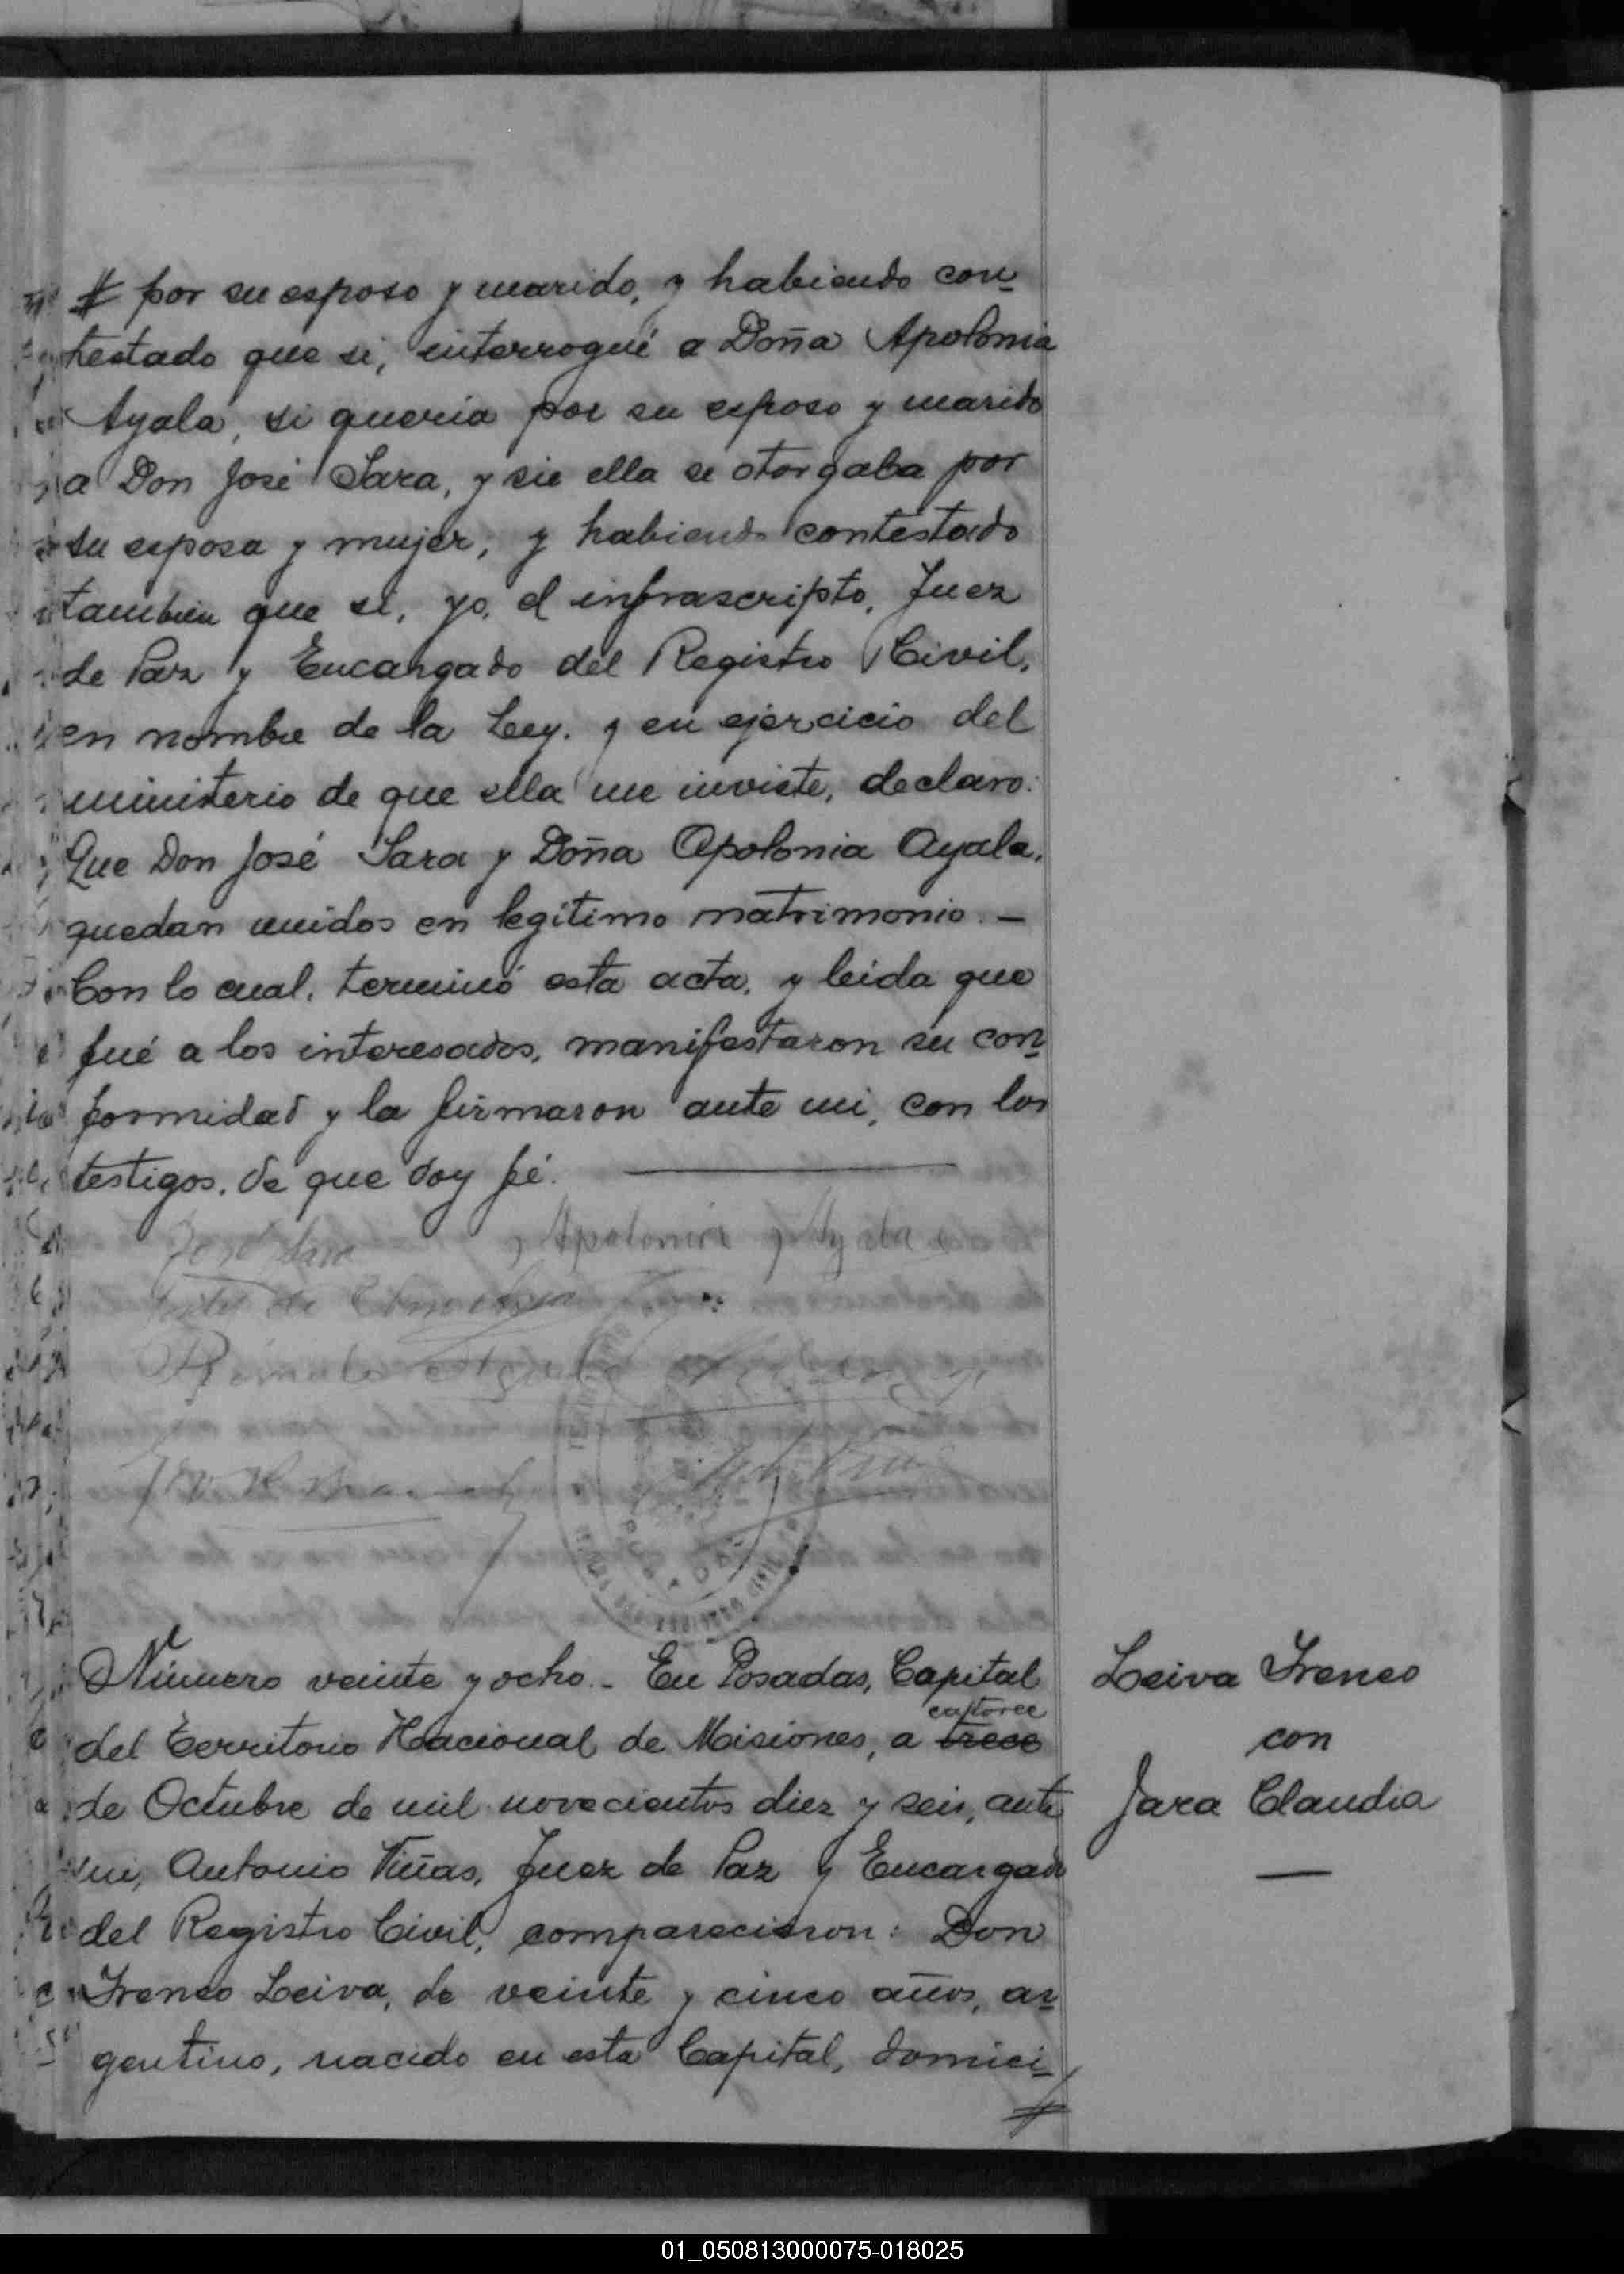 # por su esposo y marido, y habiendo con-
testado que si, interrogué a Doña Apolonia
Ayala, si queria por su esposo y marido
a Don José Sara, y sie ella se otorgaba por
su esposa y mujer, y habiendo contestado
tambien que si, yo, el infrascripto, Juez
de Paz y Encargado del Registro Civil,
en nombre de la Ley. y en ejercicio del
ministerio de que ella me inviste, declaro:
Que Don José Sara y Doña Apolonia Ayala,
quedan unidos en legítimo matrimonio. —
Con lo cual, terminó esta acta, y leida que
fué a los interesados, manifestaron su con-
formidad y la firmaron ante mi, con los
testigos, de que doy fé.
José Sara Apolonia Ayala
Número veinte y ocho. - En Posadas, Capital
catorce
del Territorio Nacional de Misiones, a trece
de Octubre de mil novecientos diez y seis, ante
mi, Antonio Viñas, Juez de Paz y Encargado
del Registro Civil, comparecieron: Don
Ireneo Leiva, de veinte y cinco años, ar-
gentino, nacido en esta Capital, domici-
#
Leiva Ireneo
con
Jara Claudia
01_050813000075-018025